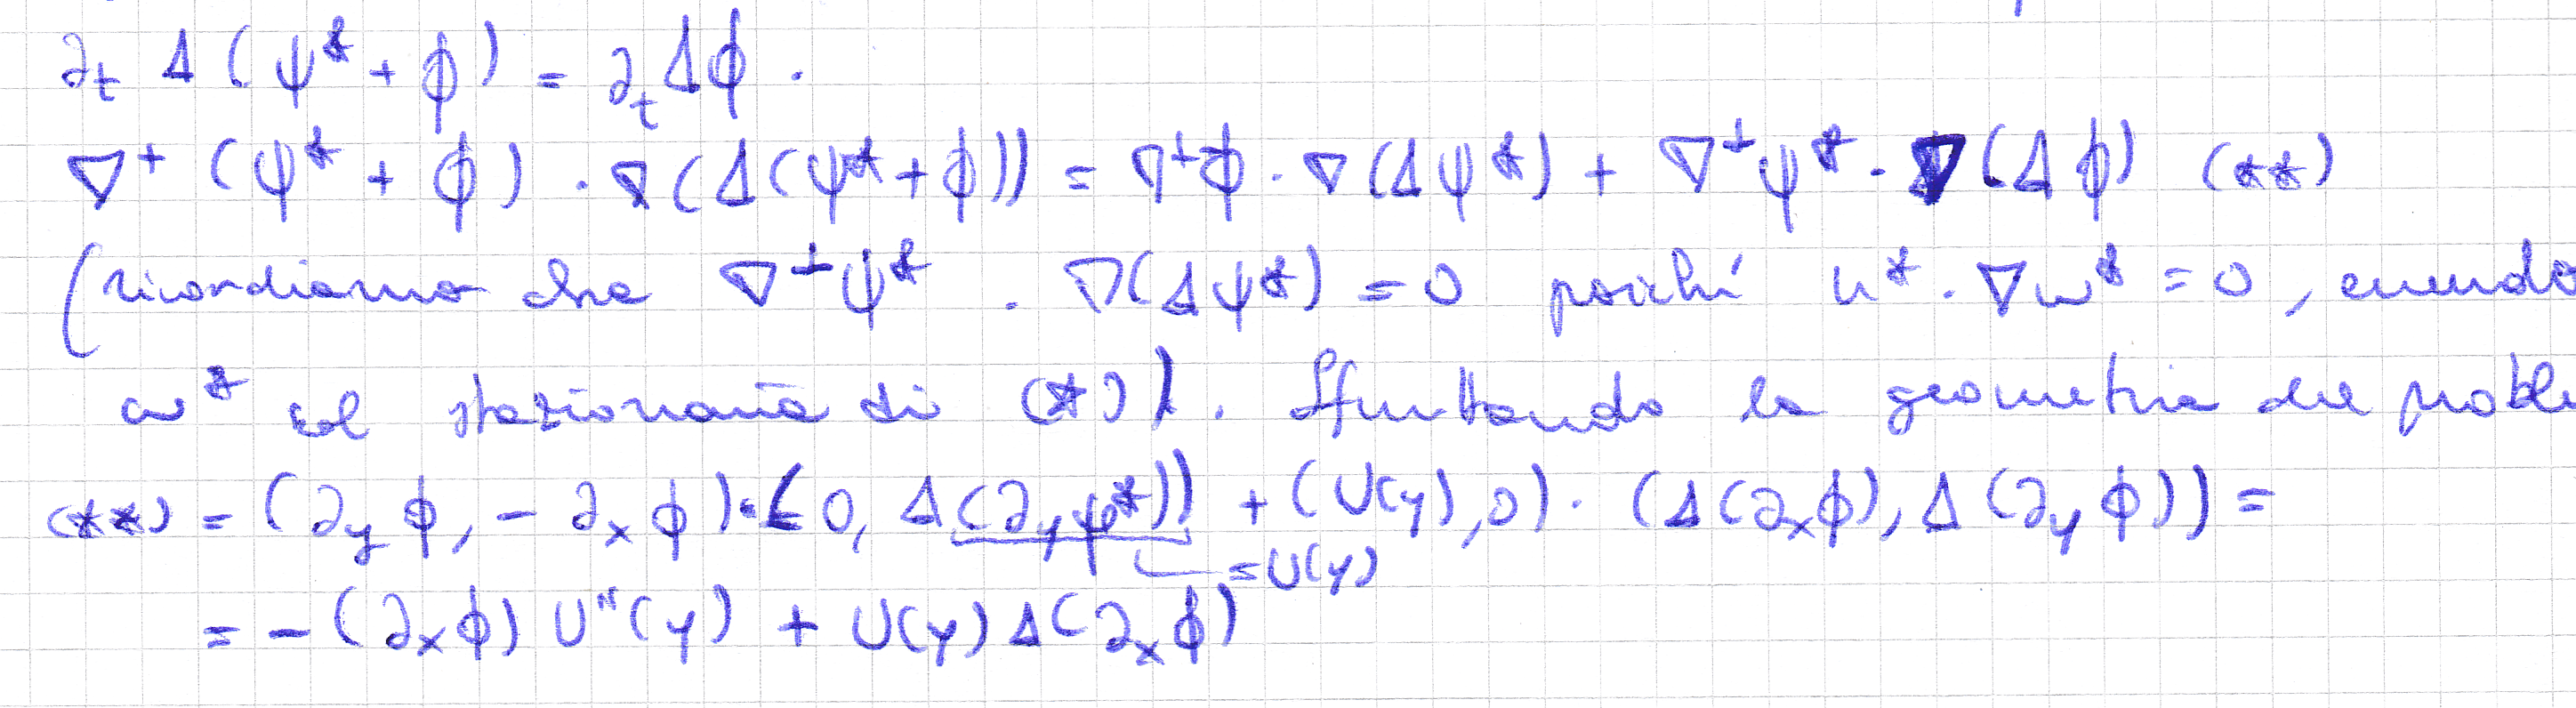 ∂ₜ Δ (ψ* + ϕ) = ∂ₜ Δϕ .
∇^⊥ (ψ* + ϕ) · ∇(Δ(ψ* + ϕ)) = ∇^⊥ϕ · ∇(Δψ*) + ∇^⊥ψ* · ∇(Δϕ) (**)
(ricordiamo che ∇^⊥ψ* · ∇(Δψ*) = 0 poiché u* · ∇ω* = 0, essendo
ω* sol stazionaria di (*)). Sfruttando la geometria del proble
(**) = (∂_yϕ, -∂_xϕ) · (0, Δ(∂_yψ*)) + (U(y), 0) · (Δ(∂_xϕ), Δ(∂_yϕ)) =
= U(y)
= -(∂_xϕ) U''(y) + U(y) Δ(∂_xϕ)